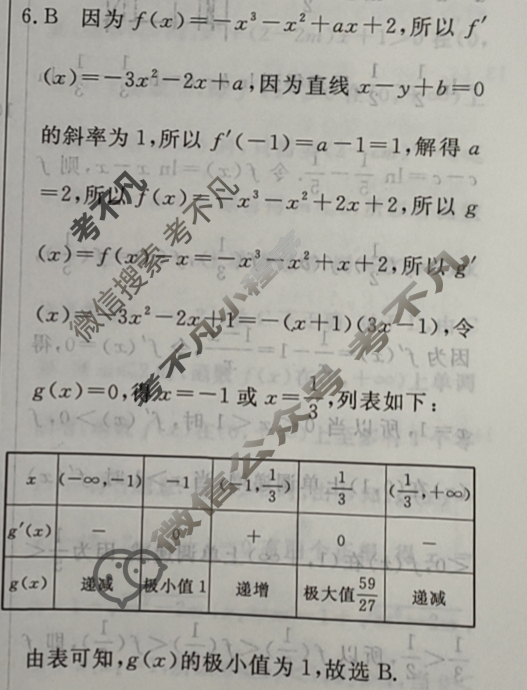 6. B 因为 f(x)=-x³-x²+ax+2,所以 f′
(x)=-3x²-2x+a,因为直线 x-y+b=0
的斜率为 1,所以 f′(-1)=a-1=1,解得 a
=2,所以 f(x)=-x³-x²+2x+2,所以 g
(x)=f(x)-x=-x³-x²+x+2,所以 g′
(x)=-3x²-2x+1=-(x+1)(3x-1),令
g(x)=0,得 x=-1 或 x=1/3,列表如下:
x (-∞,-1) -1 (-1,1/3) 1/3 (1/3,+∞)
g′(x) - 0 + 0 -
g(x) 递减 极小值 1 递增 极大值59/27 递减
由表可知,g(x)的极小值为 1,故选 B.
考不凡
微信搜索 考不凡
考不凡小程序
微信公众号 考不凡